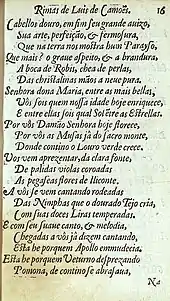 Rimas de Luis de Camões. 16
Cabellos douro, em fim seu grande auiso,
Sua arte, perfeição, & fermosura,
Que na terra nos mostra hum Parayso,
Que mais? o graue aspeito, & a brandura,
A boca de Robis, chea de perlas,
Das christalinas mãos a neue pura.
Senhora dona Maria, entre as mais bellas,
Vòs sois quem nossa idade hoje enriquece,
E entre ellas sois qual Sol entre as Estrellas.
Por vòs Danião Senhora hoje florece,
Por vòs as Musas jà do sacro monte,
Donde contino o Louro verde crece.
Vos vem aprezentar, da clara fonte,
De palidas violas coroadas
As pegaseas flores de Iliconte.
A vòs se vem cantando rodeadas
Das Nimphas que o dourado Tejo cria,
Com suas doces Liras temperadas.
E com seu suaue canto, & melodia,
Chegadas a vòs jà dizem cantando,
Esta he porquem Apollo emmudecia,
Esta he porquem Vetumo desprezando
Pomona, de contino se abrasaua,
Na